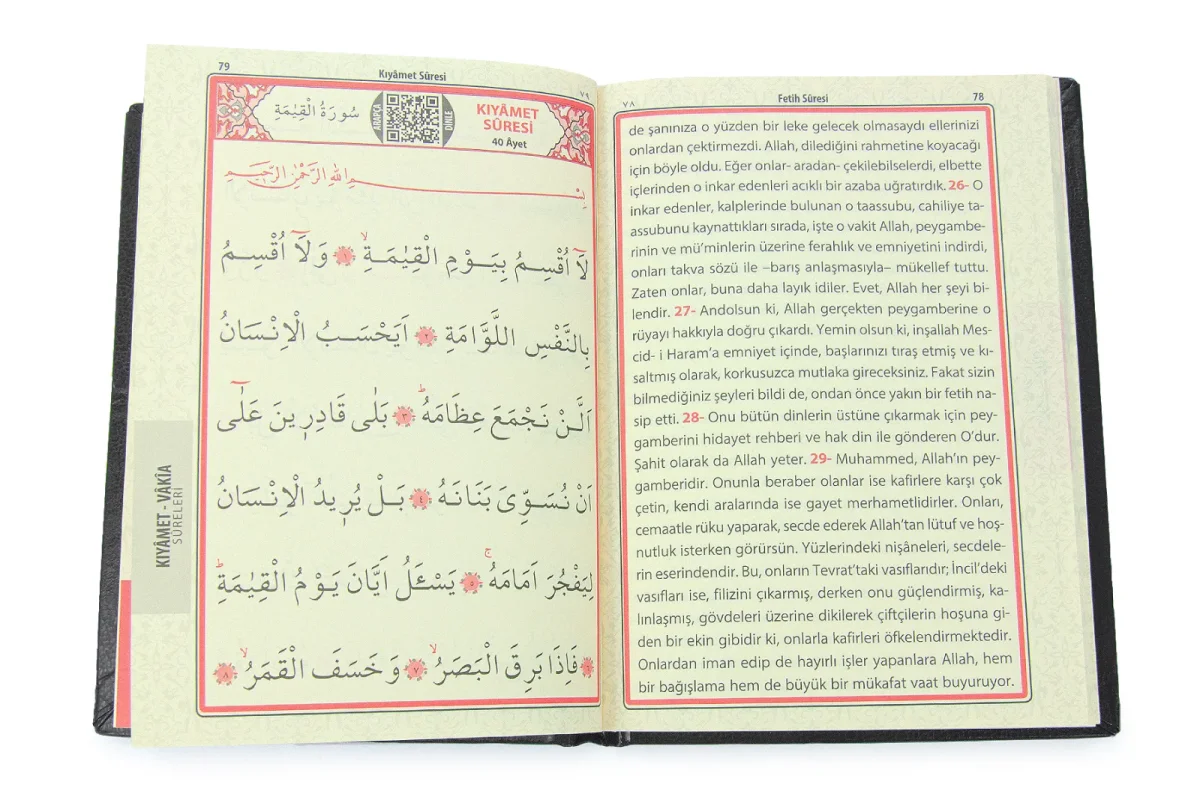 ٧٨ Fetih Sûresi 78
de şanınıza o yüzden bir leke gelecek olmasaydı ellerinizi
onlardan çektirmezdi. Allah, dilediğini rahmetine koyacağı
için böyle oldu. Eğer onlar- aradan- çekilebilselerdi, elbette
içlerinden o inkar edenleri acıklı bir azaba uğratırdık. 26- O
inkar edenler, kalplerinde bulunan o taassubu, cahiliye ta-
assubunu kaynattıkları sırada, işte o vakit Allah, peygambe-
rinin ve mü’minlerin üzerine ferahlık ve emniyetini indirdi,
onları takva sözü ile –barış anlaşmasıyla– mükellef tuttu.
Zaten onlar, buna daha layık idiler. Evet, Allah her şeyi bi-
lendir. 27- Andolsun ki, Allah gerçekten peygamberine o
rüyayı hakkıyla doğru çıkardı. Yemin olsun ki, inşallah Mes-
cid- i Haram’a emniyet içinde, başlarınızı tıraş etmiş ve kı-
saltmış olarak, korkusuzca mutlaka gireceksiniz. Fakat sizin
bilmediğiniz şeyleri bildi de, ondan önce yakın bir fetih na-
sip etti. 28- Onu bütün dinlerin üstüne çıkarmak için pey-
gamberini hidayet rehberi ve hak din ile gönderen O’dur.
Şahit olarak da Allah yeter. 29- Muhammed, Allah’ın pey-
gamberidir. Onunla beraber olanlar ise kafirlere karşı çok
çetin, kendi aralarında ise gayet merhametlidirler. Onları,
cemaatle rüku yaparak, secde ederek Allah’tan lütuf ve hoş-
nutluk isterken görürsün. Yüzlerindeki nişâneleri, secdele-
rin eserindendir. Bu, onların Tevrat’taki vasıflarıdır; İncil’deki
vasıfları ise, filizini çıkarmış, derken onu güçlendirmiş, ka-
lınlaşmış, gövdeleri üzerine dikilerek çiftçilerin hoşuna gi-
den bir ekin gibidir ki, onlarla kafirleri öfkelendirmektedir.
Onlardan iman edip de hayırlı işler yapanlara Allah, hem
bir bağışlama hem de büyük bir mükafat vaat buyuruyor.
79 Kıyâmet Sûresi ٧٩
سُورَةُ الْقِيٰمَةِ
ARAPÇA
DİNLE
KIYÂMET
SÛRESİ
40 Âyet
بِسْمِ اللّٰهِ الرَّحْمٰنِ الرَّحِيمِ
لَآ اُقْسِمُ بِيَوْمِ الْقِيٰمَةِۙ ١ وَلَآ اُقْسِمُ
بِالنَّفْسِ اللَّوَّامَةِ ٢ اَيَحْسَبُ الْاِنْسَانُ
اَلَّنْ نَجْمَعَ عِظَامَهُۜ ٣ بَلٰى قَادِرٖينَ عَلٰٓى
اَنْ نُسَوِّىَ بَنَانَهُ ٤ بَلْ يُرٖيدُ الْاِنْسَانُ
لِيَفْجُرَ اَمَامَهُۚ ٥ يَسْـَٔلُ اَيَّانَ يَوْمُ الْقِيٰمَةِۜ
٦ فَاِذَا بَرِقَ الْبَصَرُۙ ٧ وَخَسَفَ الْقَمَرُۙ ٨
KIYÂMET - VÂKIA
SÛRELERİ